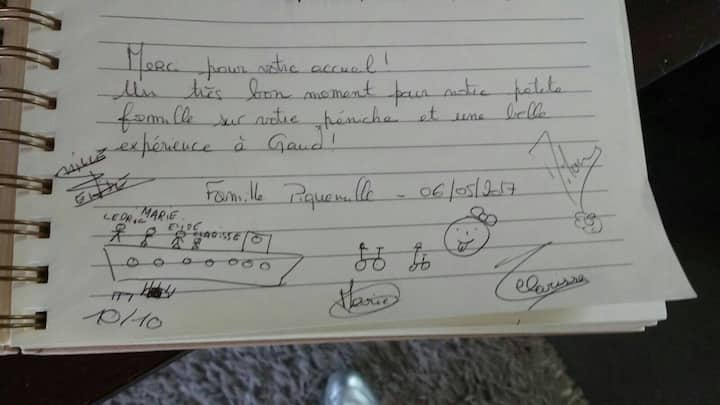 Merci pour votre accueil!
Un très bon moment pour notre petite
famille sur votre péniche et une belle
expérience à Gand!
Famille - 06/05/2017
CEDRIC MARIE
ELISE CLARISSE
Marie
Clarisse
10/10